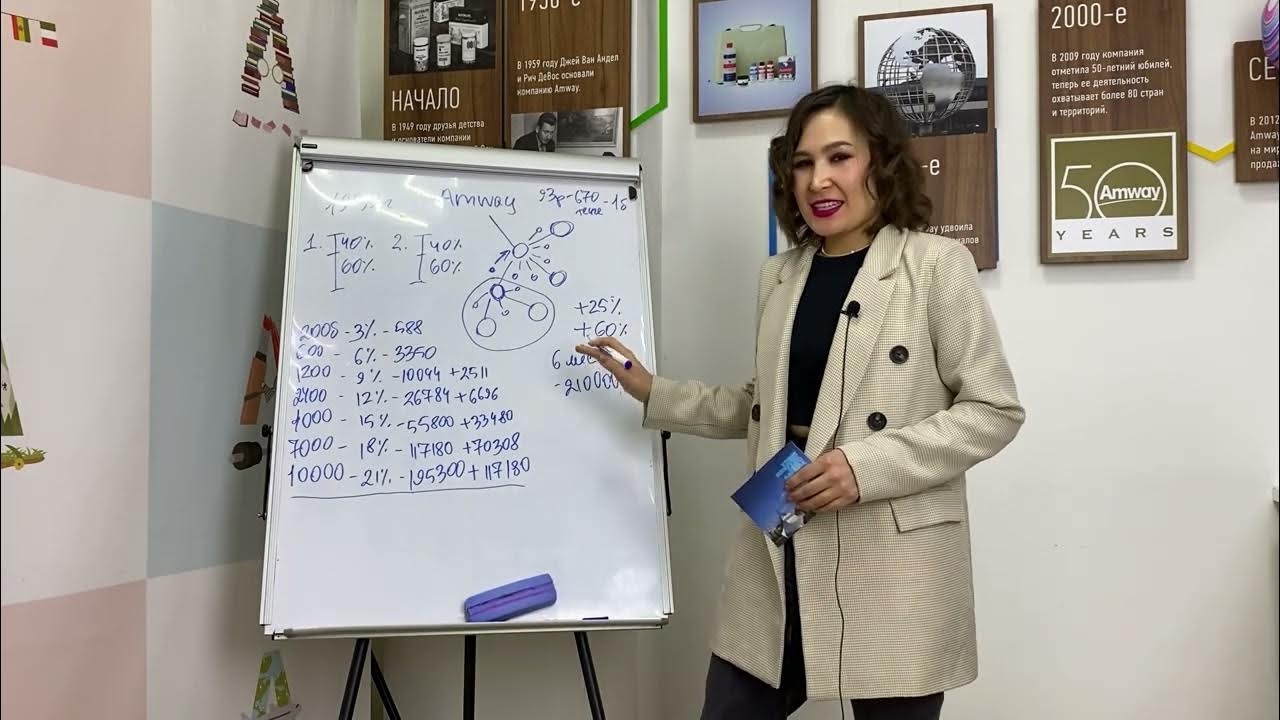 1950-е
В 1959 году Джей Ван Андел
и Рич ДеВос основали
компанию Amway.
НАЧАЛО
В 1949 году друзья детства
и основатели компании
2000-е
В 2009 году компания
отметила 50-летний юбилей,
теперь ее деятельность
охватывает более 80 стран
и территорий.
50
Amway
YEARS
-е
удвоила
СЕ
В 2012
Amway
на мир
прода
Amway
93р-670
-1б
1. 40%
60%
2. 40%
60%
+25%
+60%
6 ме
-210000
200б -3% -588
600 - 6% -3350
1200 - 9% -10044 +2511
2400 - 12% -26784 +6696
4000 - 15% -55800 +33480
7000 - 18% -117180 +70308
10000 -21% -195300 +117180